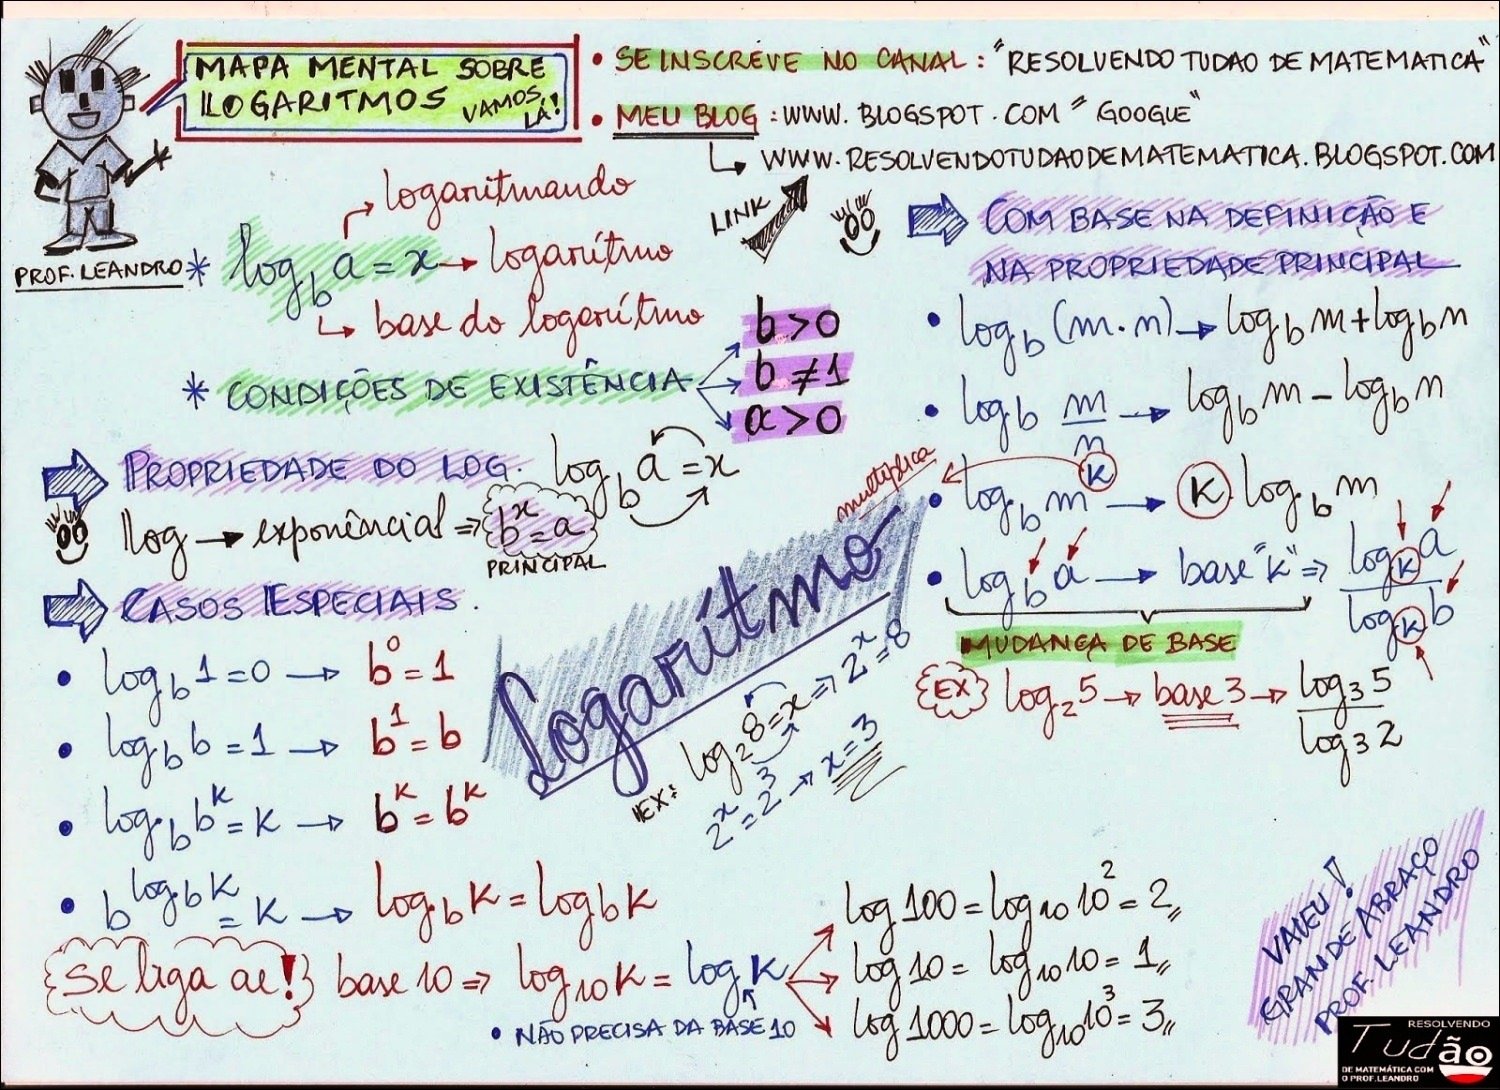 MAPA MENTAL SOBRE
LOGARITMOS VAMOS LÁ!
• SE INSCREVE NO CANAL: "RESOLVENDO TUDAO DE MATEMATICA"
• MEU BLOG: WWW.BLOGSPOT.COM "GOOGLE"
↳ WWW.RESOLVENDOTUDAODEMATEMATICA.BLOGSPOT.COM
LINK
PROF. LEANDRO
logaritmando
* log_b a = x → logarítmo
↳ base do logarítmo
* CONDIÇÕES DE EXISTÊNCIA
b > 0
b ≠ 1
a > 0
⇒ PROPRIEDADE DO LOG. log_b a = x
log → exponêncial ⇒ b^x = a
PRINCIPAL
⇒ CASOS ESPECIAIS.
• log_b 1 = 0 → b^0 = 1
• log_b b = 1 → b^1 = b
• log_b b^k = k → b^k = b^k
• b^(log_b k) = k → log_b k = log_b k
Se liga ae! base 10 ⇒ log_10 k = log k
• NÃO PRECISA DA BASE 10
log 100 = log_10 10^2 = 2,,
log 10 = log_10 10 = 1,,
log 1000 = log_10 10^3 = 3,,
Logarítmo
EX: log_2 8 = x ⇒ 2^x = 8
2^x = 2^3 → x = 3
⇒ COM BASE NA DEFINIÇÃO E
NA PROPRIEDADE PRINCIPAL
• log_b (m · n) → log_b m + log_b n
• log_b m/n → log_b m − log_b n
multiplica
• log_b m^k → k · log_b m
• log_b a → base "k" ⇒ log_k a / log_k b
MUDANÇA DE BASE
EX log_2 5 → base 3 → log_3 5 / log_3 2
VALEU!
GRANDE ABRAÇO
PROF. LEANDRO
RESOLVENDO
Tudão
DE MATEMÁTICA COM
O PROF. LEANDRO